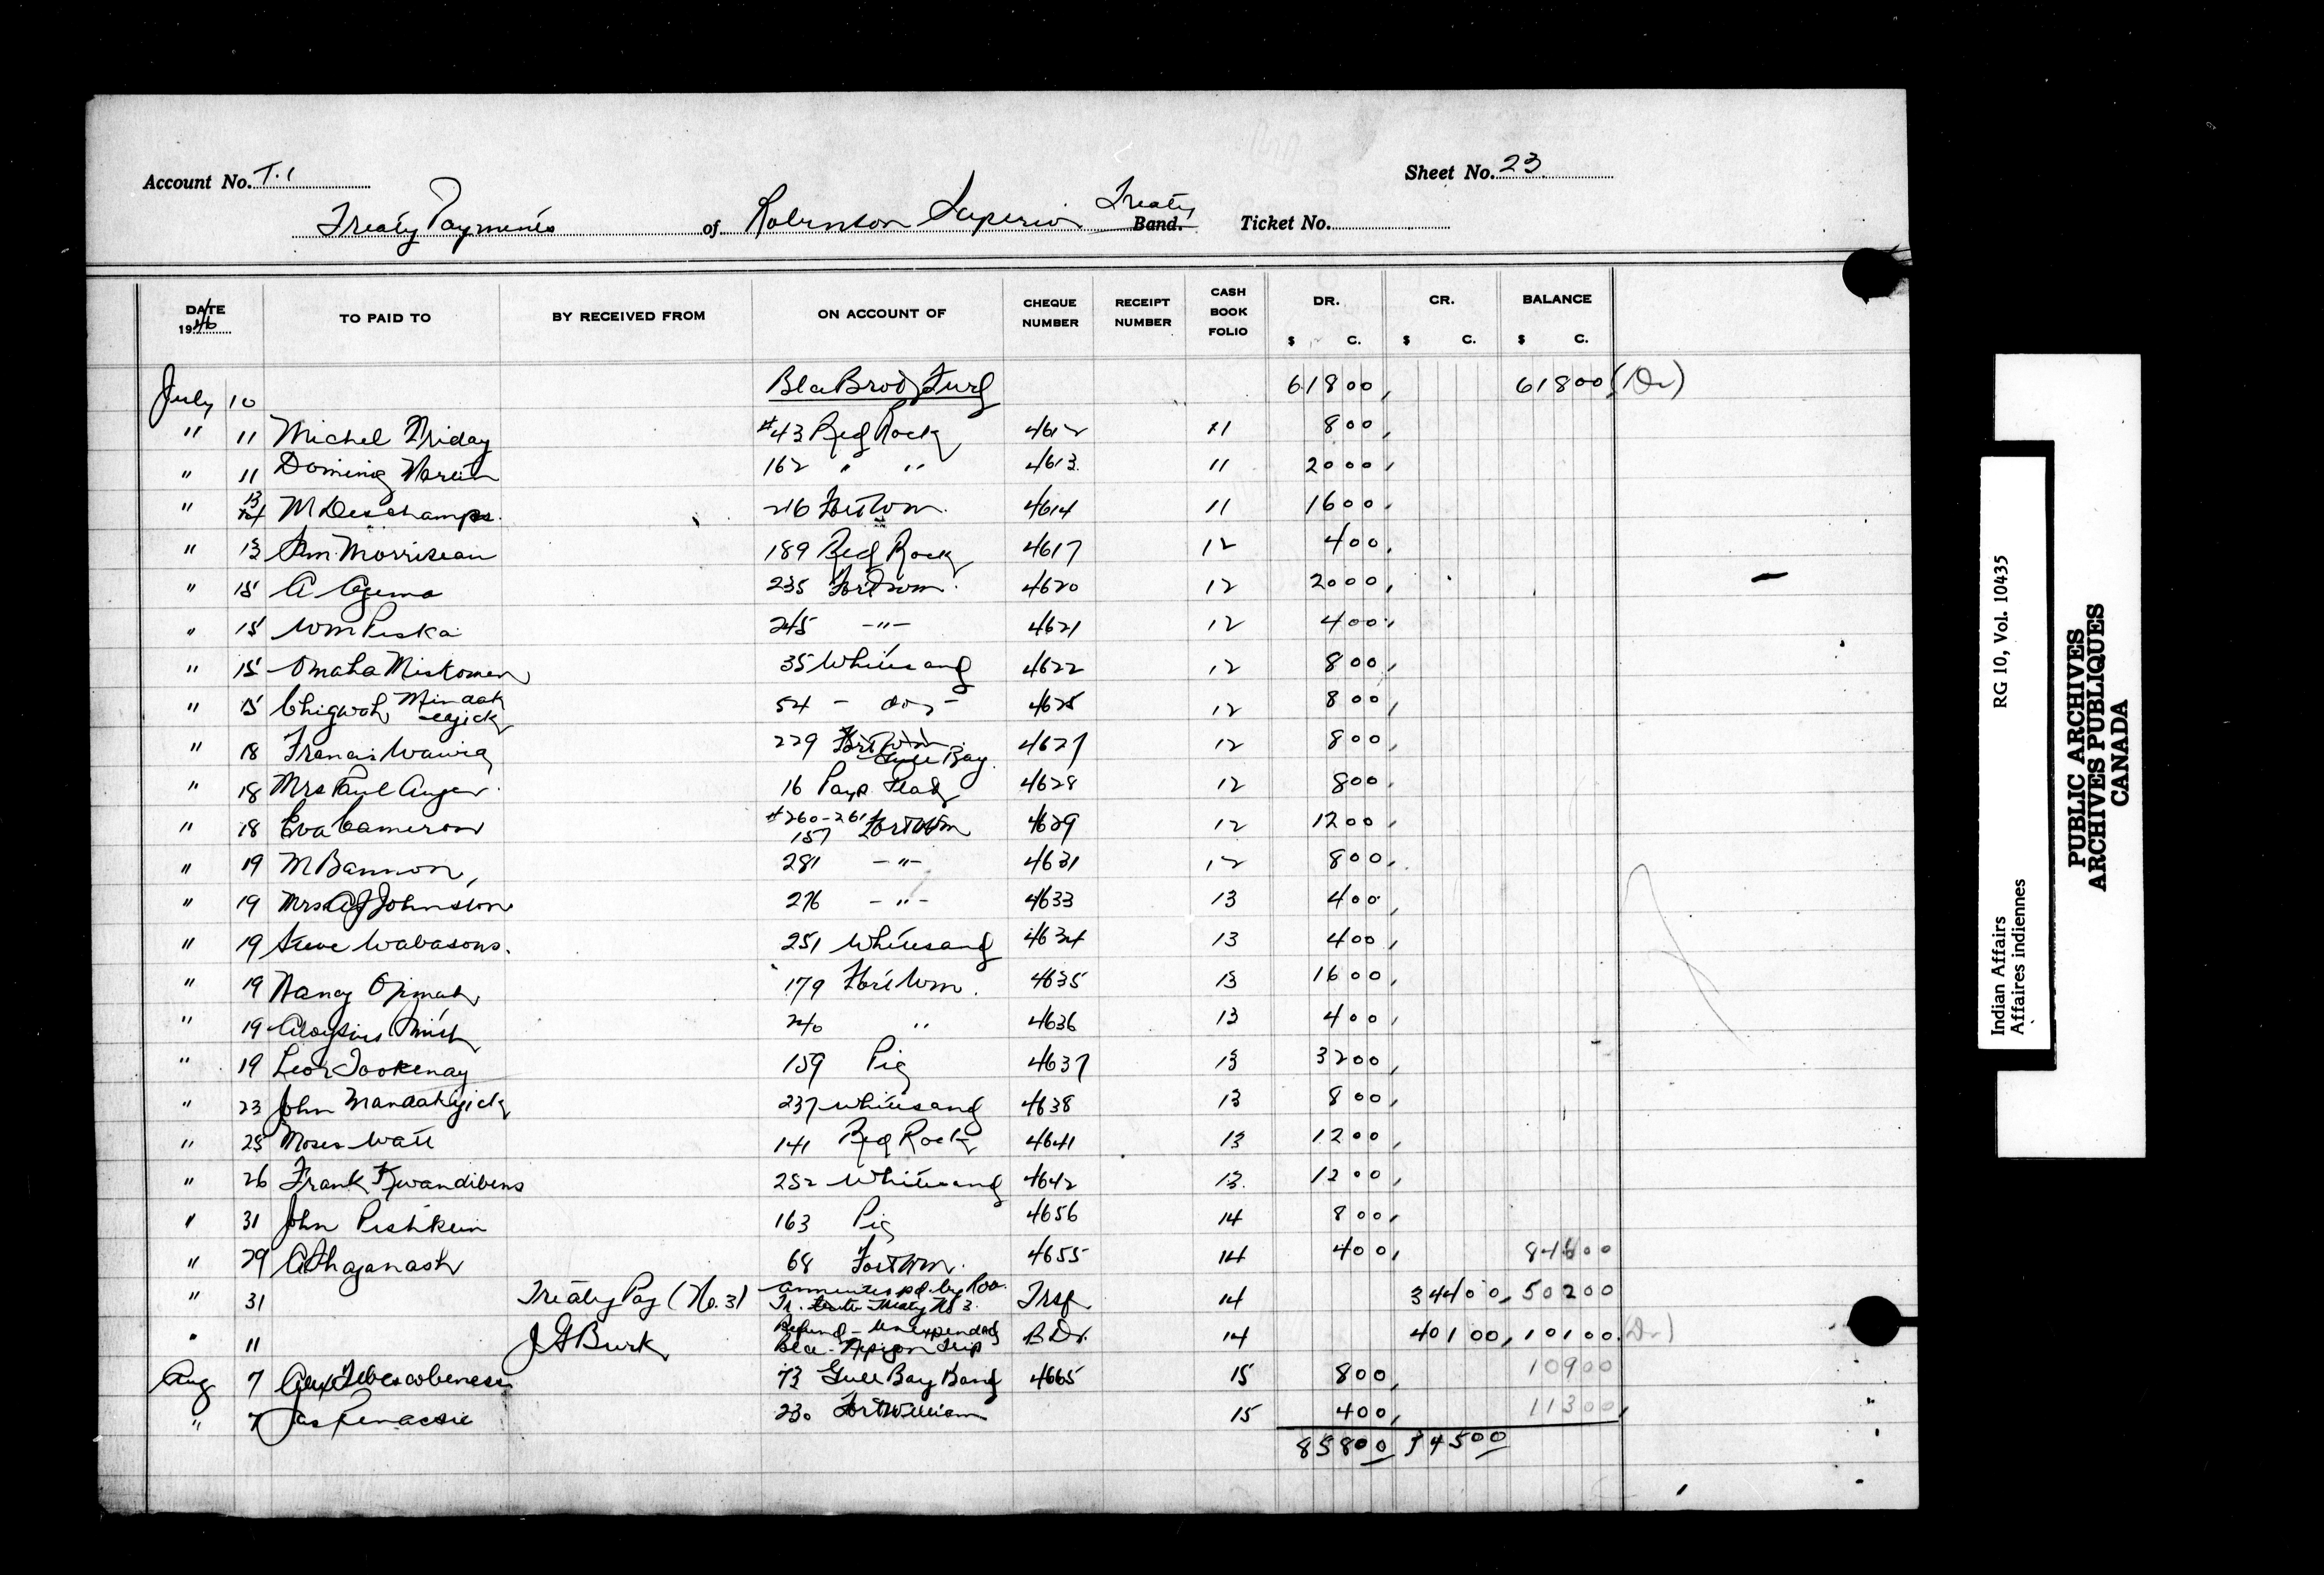 Account No. T.1
Sheet No. 23
Treaty Payments of Robinson Superior Treaty Band. Ticket No.
DATE 1946 TO PAID TO BY RECEIVED FROM ON ACCOUNT OF CHEQUE NUMBER RECEIPT NUMBER CASH BOOK FOLIO DR. $ C. CR. $ C. BALANCE $ C.
July 10 618 00 618 00 (Dr)
" 11 Michel Friday #43 Red Rock 4612 11 8 00
" 11 162 " " 4613 11 20 00
" 13 M Deschamps 216 Fort Wm. 4614 11 16 00
" 13 Morriseau 189 Red Rock 4617 12 4 00
" 15 A Ogema 235 Fort Wm. 4620 12 20 00
" 15 Wm Peska 245 -"- 4621 12 4 00
" 15 Omaha Miskomen 35 Whitesand 4622 12 8 00
" 15 Chigwah Mindak egick 54 - do - 4625 12 8 00
" 18 Francis Wawia 229 Fort Wm Gull Bay 4627 12 8 00
" 18 Mrs Paul Auger 16 Pays Plat 4628 12 8 00
" 18 Eva Cameron #260-261 157 Fort Wm 4629 12 12 00
" 19 M Bannon, 281 -"- 4631 12 8 00
" 19 Mrs A J Johnston 276 -"- 4633 13 4 00
" 19 Steve Wabasons. 251 Whitesand 4634 13 4 00
" 19 Nancy 179 Fort Wm. 4635 13 16 00
" 19 Aloysius 240 " 4636 13 4 00
" 19 Leo Tookenay 159 Pic 4637 13 32 00
" 23 John Mandahgick 237 Whitesand 4638 13 8 00
" 25 Moses Watt 141 Red Rock 4641 13 12 00
" 26 Frank Kwandibens 252 Whitesand 4642 13 12 00
" 31 John Pishkein 163 Pic 4656 14 8 00
" 29 A Shaganash 68 Fort Wm. 4655 14 4 00 846 00
" 31 Treaty Pay (No. 3) Annuities pd. by Rob. Tr. Treaty No 3. Trsf. 14 344 00 502 00
" 11 J G Burk Refund - Unexpended Bla. Nipigon Trip B.Dr. 14 401 00 101 00 (Dr)
Aug 7 73 Gull Bay Band 4665 15 8 00 109 00
" 7 Jas Penassie 230 Fort William 15 4 00 113 00
858 00 745 00
Indian Affairs RG 10, Vol. 10435
Affaires indiennes
PUBLIC ARCHIVES
ARCHIVES PUBLIQUES
CANADA